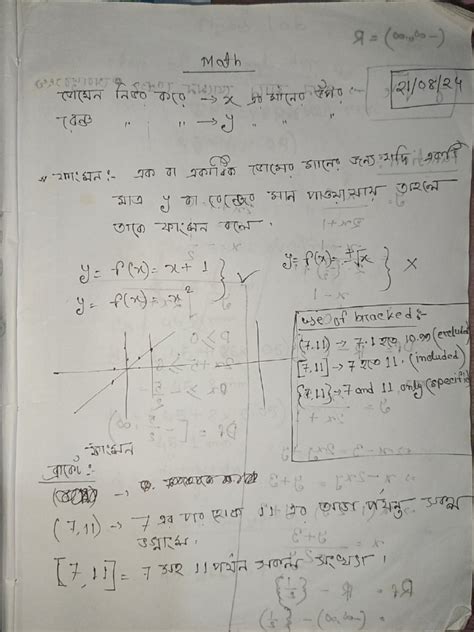 R = (-∞,∞)
Math
21/08/24
ডোমেন নির্ভর করে → x এর মানের উপর
রেঞ্জ " " " → y " "
ফাংশন: এক বা একাধিক ডোমেন মানের জন্য যদি একটি
মাত্র y বা রেঞ্জের মান পাওয়া যায় তাহলে
তাকে ফাংশন বলে.
y = f(x) = x + 1
y = f(x) = x² } ✓
y = f(x) = ±√x } ×
use of bracked :-
(7,11) → 7.1 হতে 10.99 (exclud
[7,11] → 7 হতে 11. (included)
{7,11} → 7 and 11 only (specific
ফাংশন
ব্রাকেট :
(7,11) → 7 এর পর থেকে 11 এর আগে পর্যন্ত সকল
ভগ্নাংশ.
[7,11] = 7 সহ 11 পর্যন্ত সকল সংখ্যা.